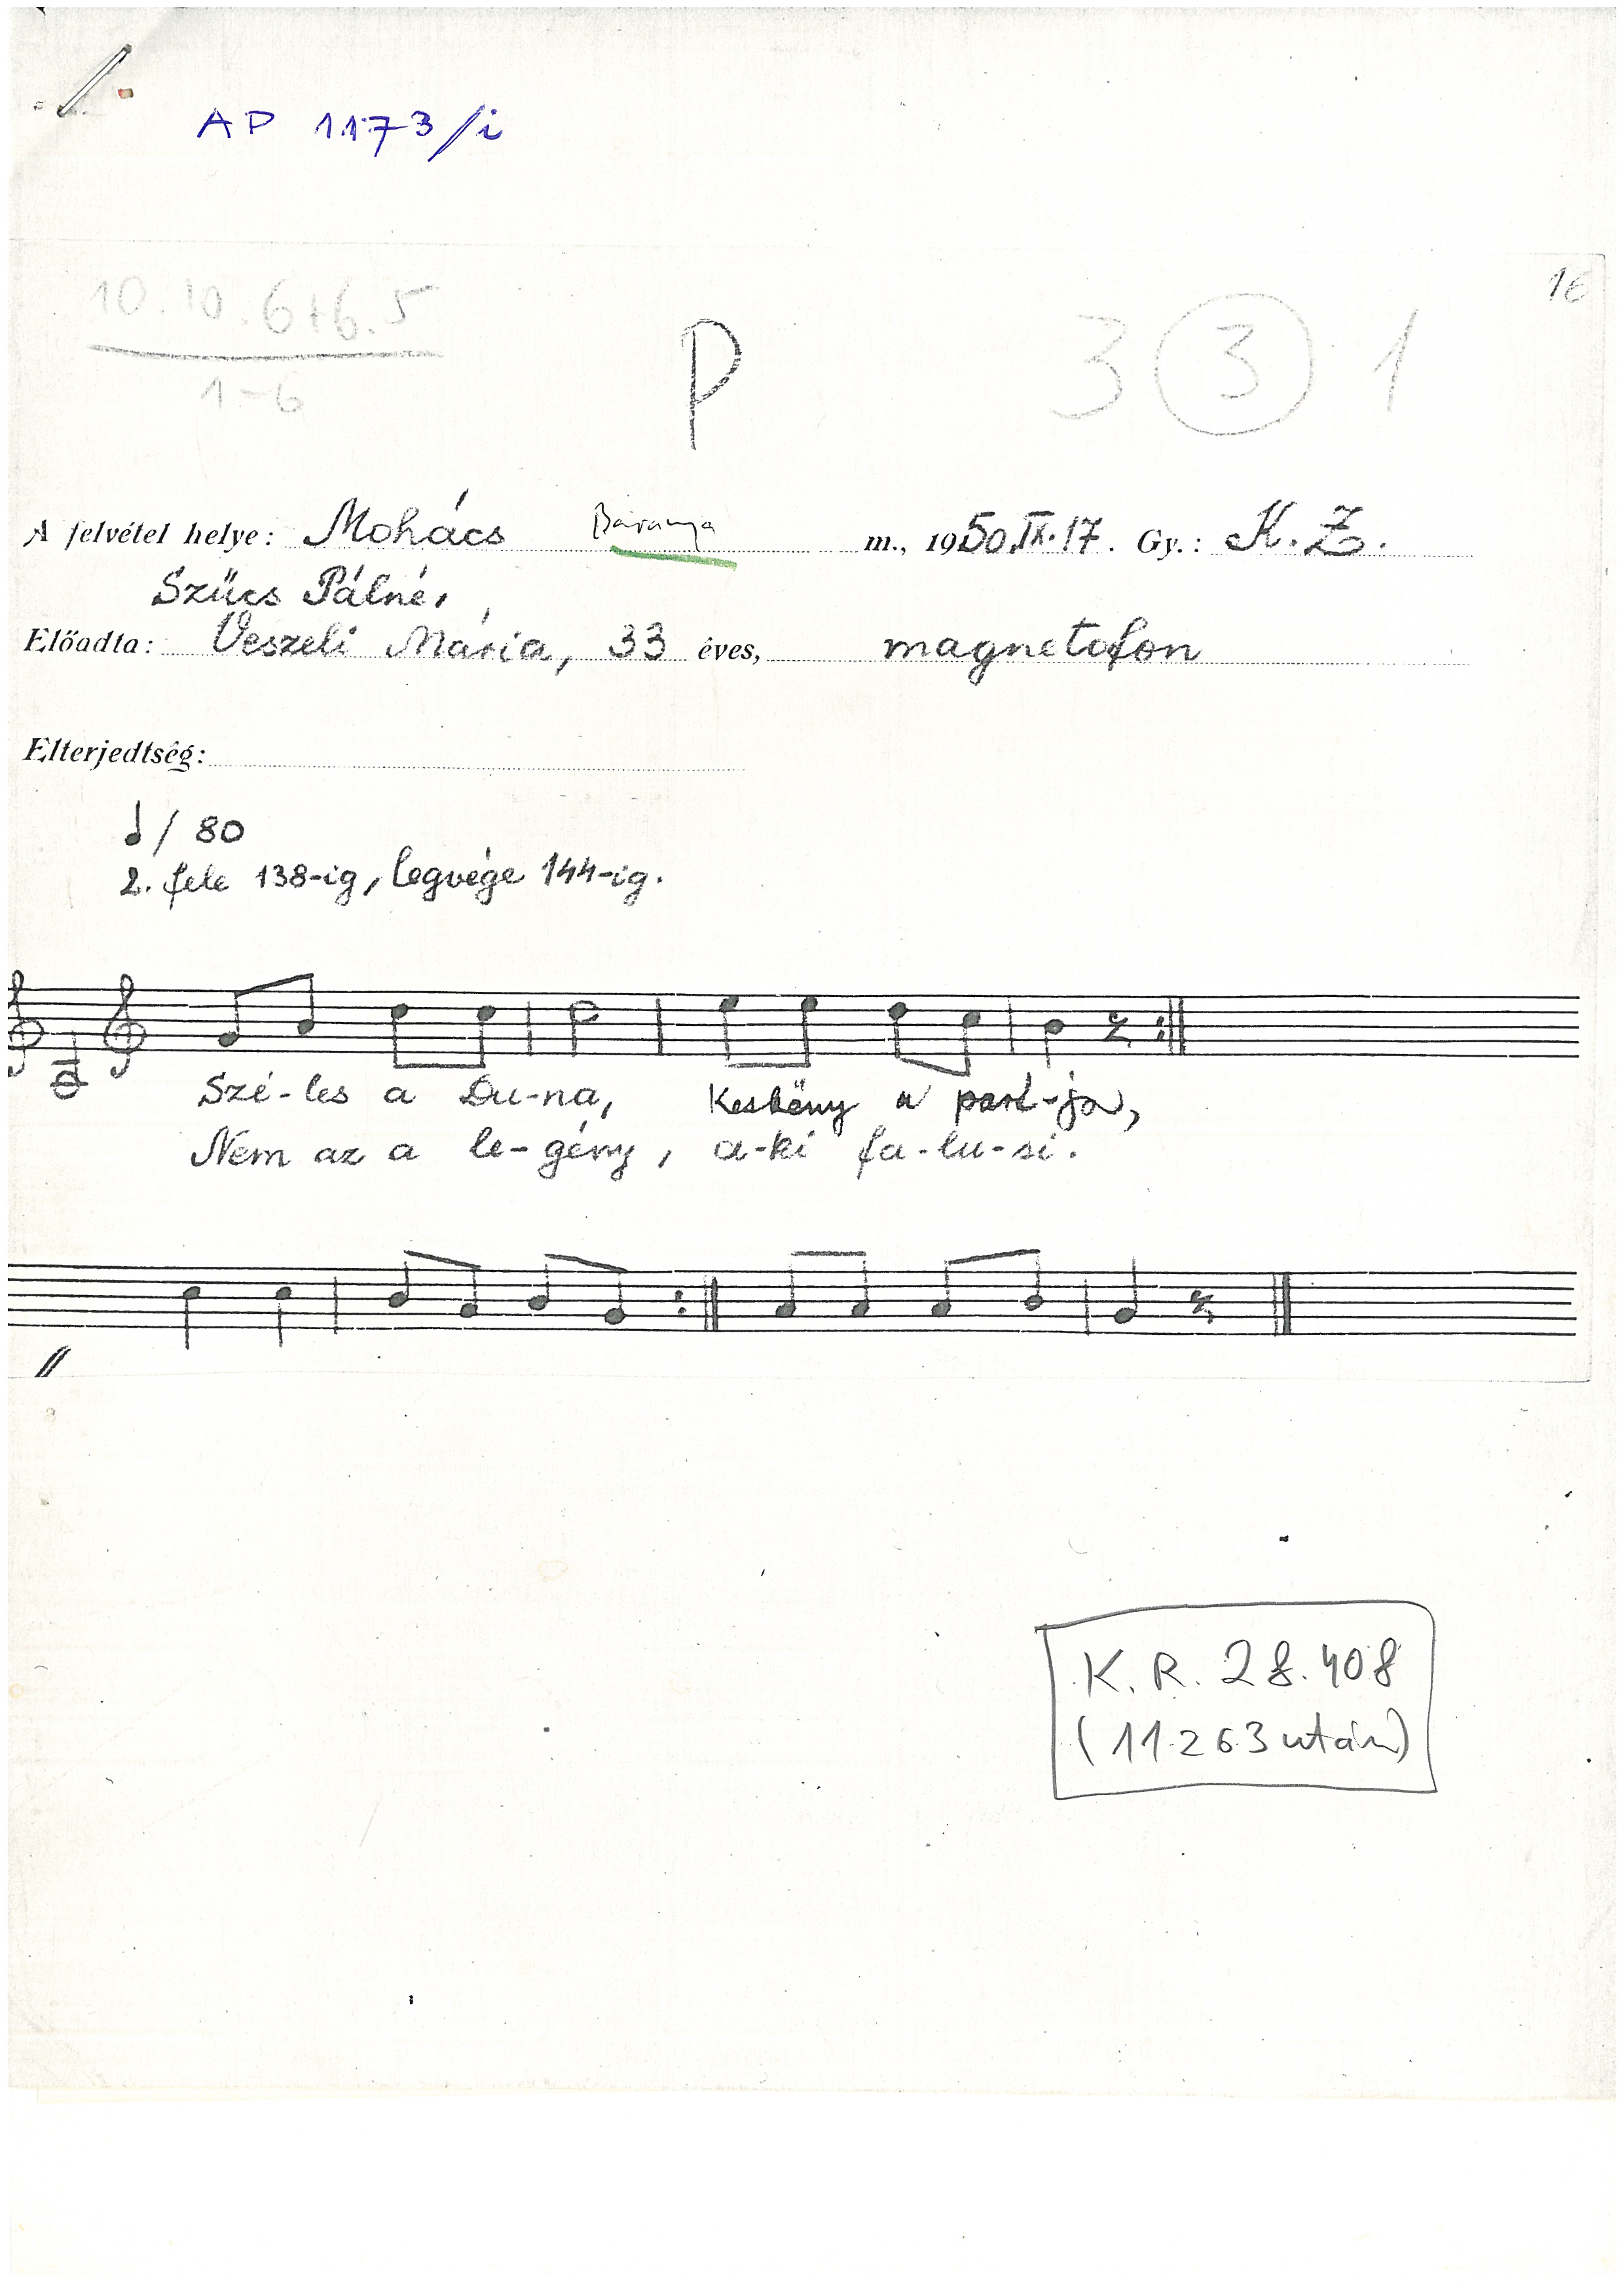 AP 1173/i
16
10. 10. 6+6. 5
1-6
P
3 3 1
A felvétel helye: Mohács Baranya m., 1950.IX.17. Gy.: K.Z.
Szücs Pálné,
Előadta: Veszeli Mária, 33 éves, magnetofon
Elterjedtség:
/ 80
2. fele 138-ig, legvége 144-ig.
Szé-les a Du-na, Keskëny a part-ja,
Nem az a le-gény, a-ki fa-lu-si.
K.R. 28.408
(11263 után)